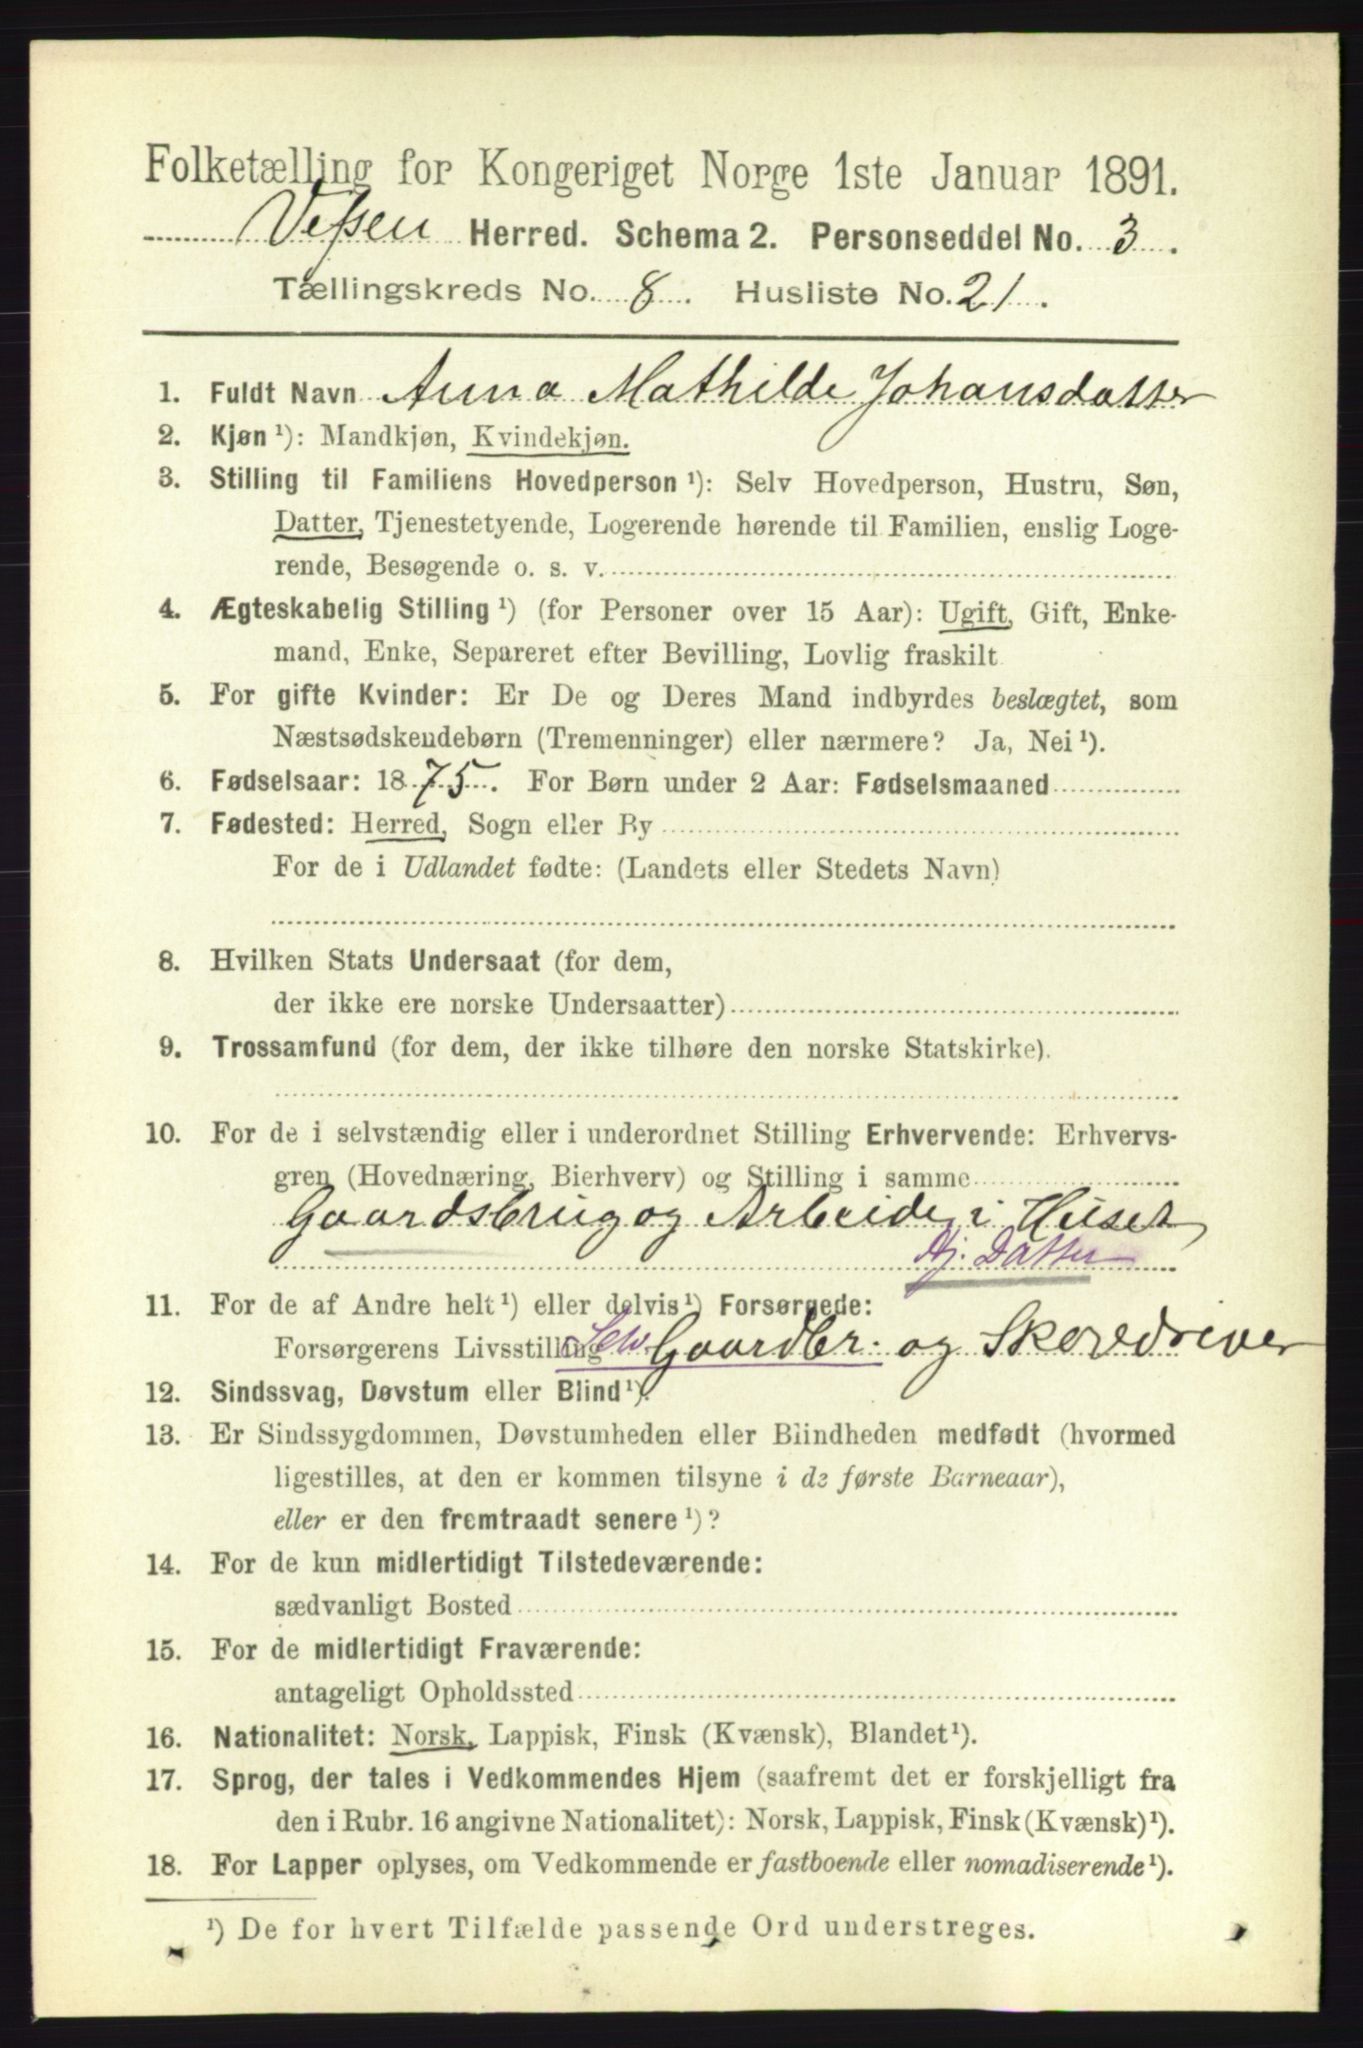 Folketælling for Kongeriget Norge 1ste Januar 1891.
Vefsen Herred. Schema 2. Personseddel No. 3.
Tællingskreds No. 8. Husliste No. 21.
1. Fuldt Navn Anna Mathilde Johansdatter
2. Kjøn ¹): Mandkjøn, Kvindekjøn.
3. Stilling til Familiens Hovedperson ¹): Selv Hovedperson, Hustru, Søn,
Datter, Tjenestetyende, Logerende hørende til Familien, enslig Loge-
rende, Besøgende o. s. v.
4. Ægteskabelig Stilling ¹) (for Personer over 15 Aar): Ugift, Gift, Enke-
mand, Enke, Separeret efter Bevilling, Lovlig fraskilt
5. For gifte Kvinder: Er De og Deres Mand indbyrdes beslægtet, som
Næstsødskendebørn (Tremenninger) eller nærmere? Ja, Nei ¹).
6. Fødselsaar: 1875. For Børn under 2 Aar: Fødselsmaaned
7. Fødested: Herred, Sogn eller By
For de i Udlandet fødte: (Landets eller Stedets Navn)
8. Hvilken Stats Undersaat (for dem,
der ikke ere norske Undersaatter)
9. Trossamfund (for dem, der ikke tilhøre den norske Statskirke).
10. For de i selvstændig eller i underordnet Stilling Erhvervende: Erhvervs-
gren (Hovednæring, Bierhverv) og Stilling i samme
Gaardsbrug og Arbeide i Huset
Hj. Datter
11. For de af Andre helt ¹) eller delvis ¹) Forsørgede:
Forsørgerens Livsstilling Selv Gaardbr. og Skovdriver
12. Sindssvag, Døvstum eller Blind ¹).
13. Er Sindssygdommen, Døvstumheden eller Blindheden medfødt (hvormed
ligestilles, at den er kommen tilsyne i de første Barneaar),
eller er den fremtraadt senere ¹)?
14. For de kun midlertidigt Tilstedeværende:
sædvanligt Bosted
15. For de midlertidigt Fraværende:
antageligt Opholdssted
16. Nationalitet: Norsk, Lappisk, Finsk (Kvænsk), Blandet ¹).
17. Sprog, der tales i Vedkommendes Hjem (saafremt det er forskjelligt fra
den i Rubr. 16 angivne Nationalitet): Norsk, Lappisk, Finsk (Kvænsk) ¹).
18. For Lapper oplyses, om Vedkommende er fastboende eller nomadiserende ¹).
¹) De for hvert Tilfælde passende Ord understreges.